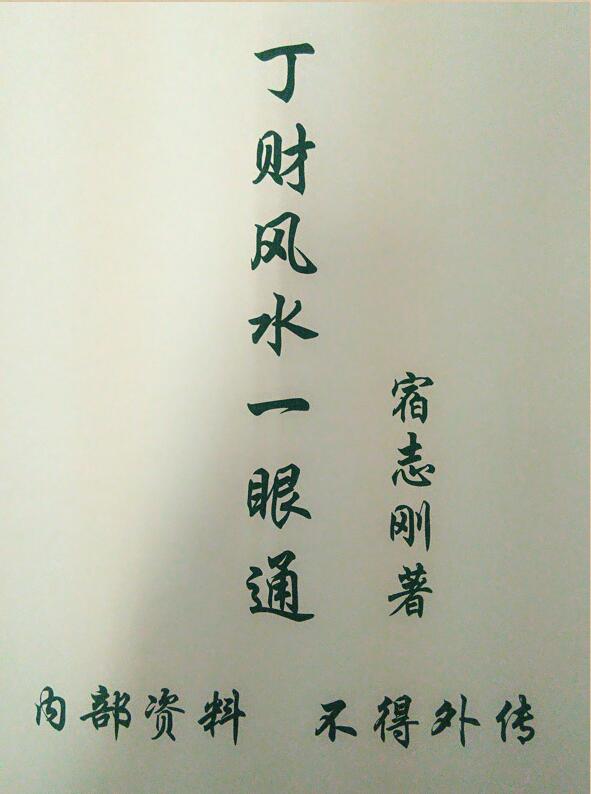 丁财风水一眼通
宿志刚著
内部资料 不得外传